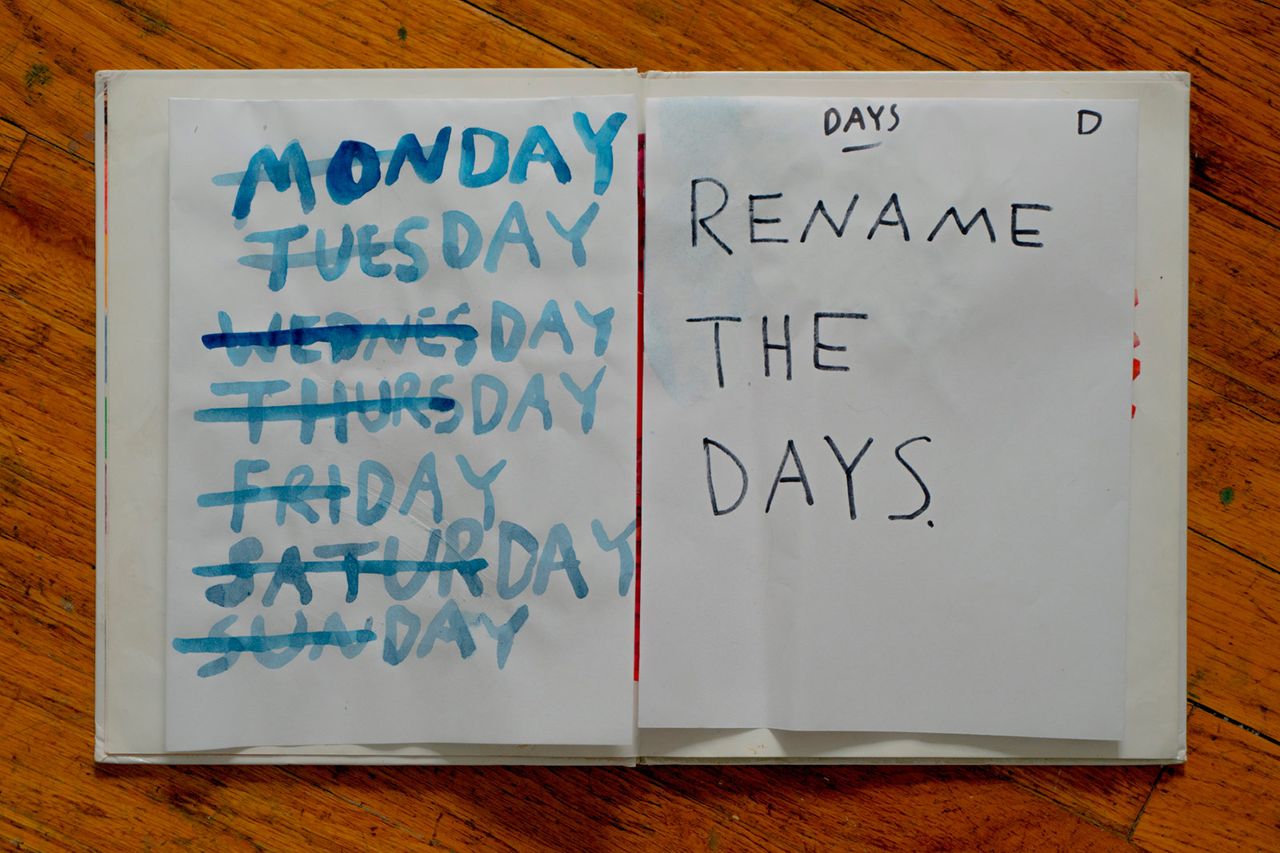 MONDAY
TUESDAY
WEDNESDAY
THURSDAY
FRIDAY
SATURDAY
SUNDAY
DAYS D
RENAME
THE
DAYS.